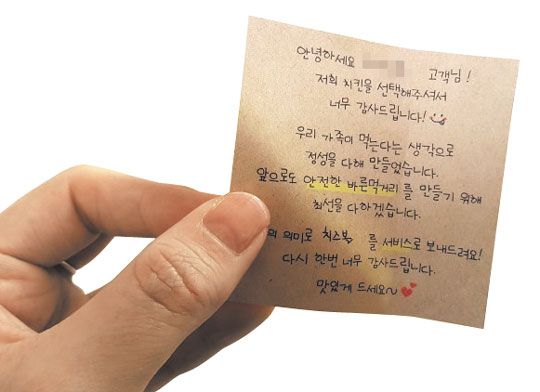 안녕하세요 고객님!
저희 치킨을 선택해주셔서
너무 감사드립니다!
우리 가족이 먹는다는 생각으로
정성을 다해 만들었습니다.
앞으로도 안전한 바른먹거리를 만들기 위해
최선을 다하겠습니다.
의 의미로 치즈볼 를 서비스로 보내드려요!
다시 한번 너무 감사드립니다.
맛있게 드세요~